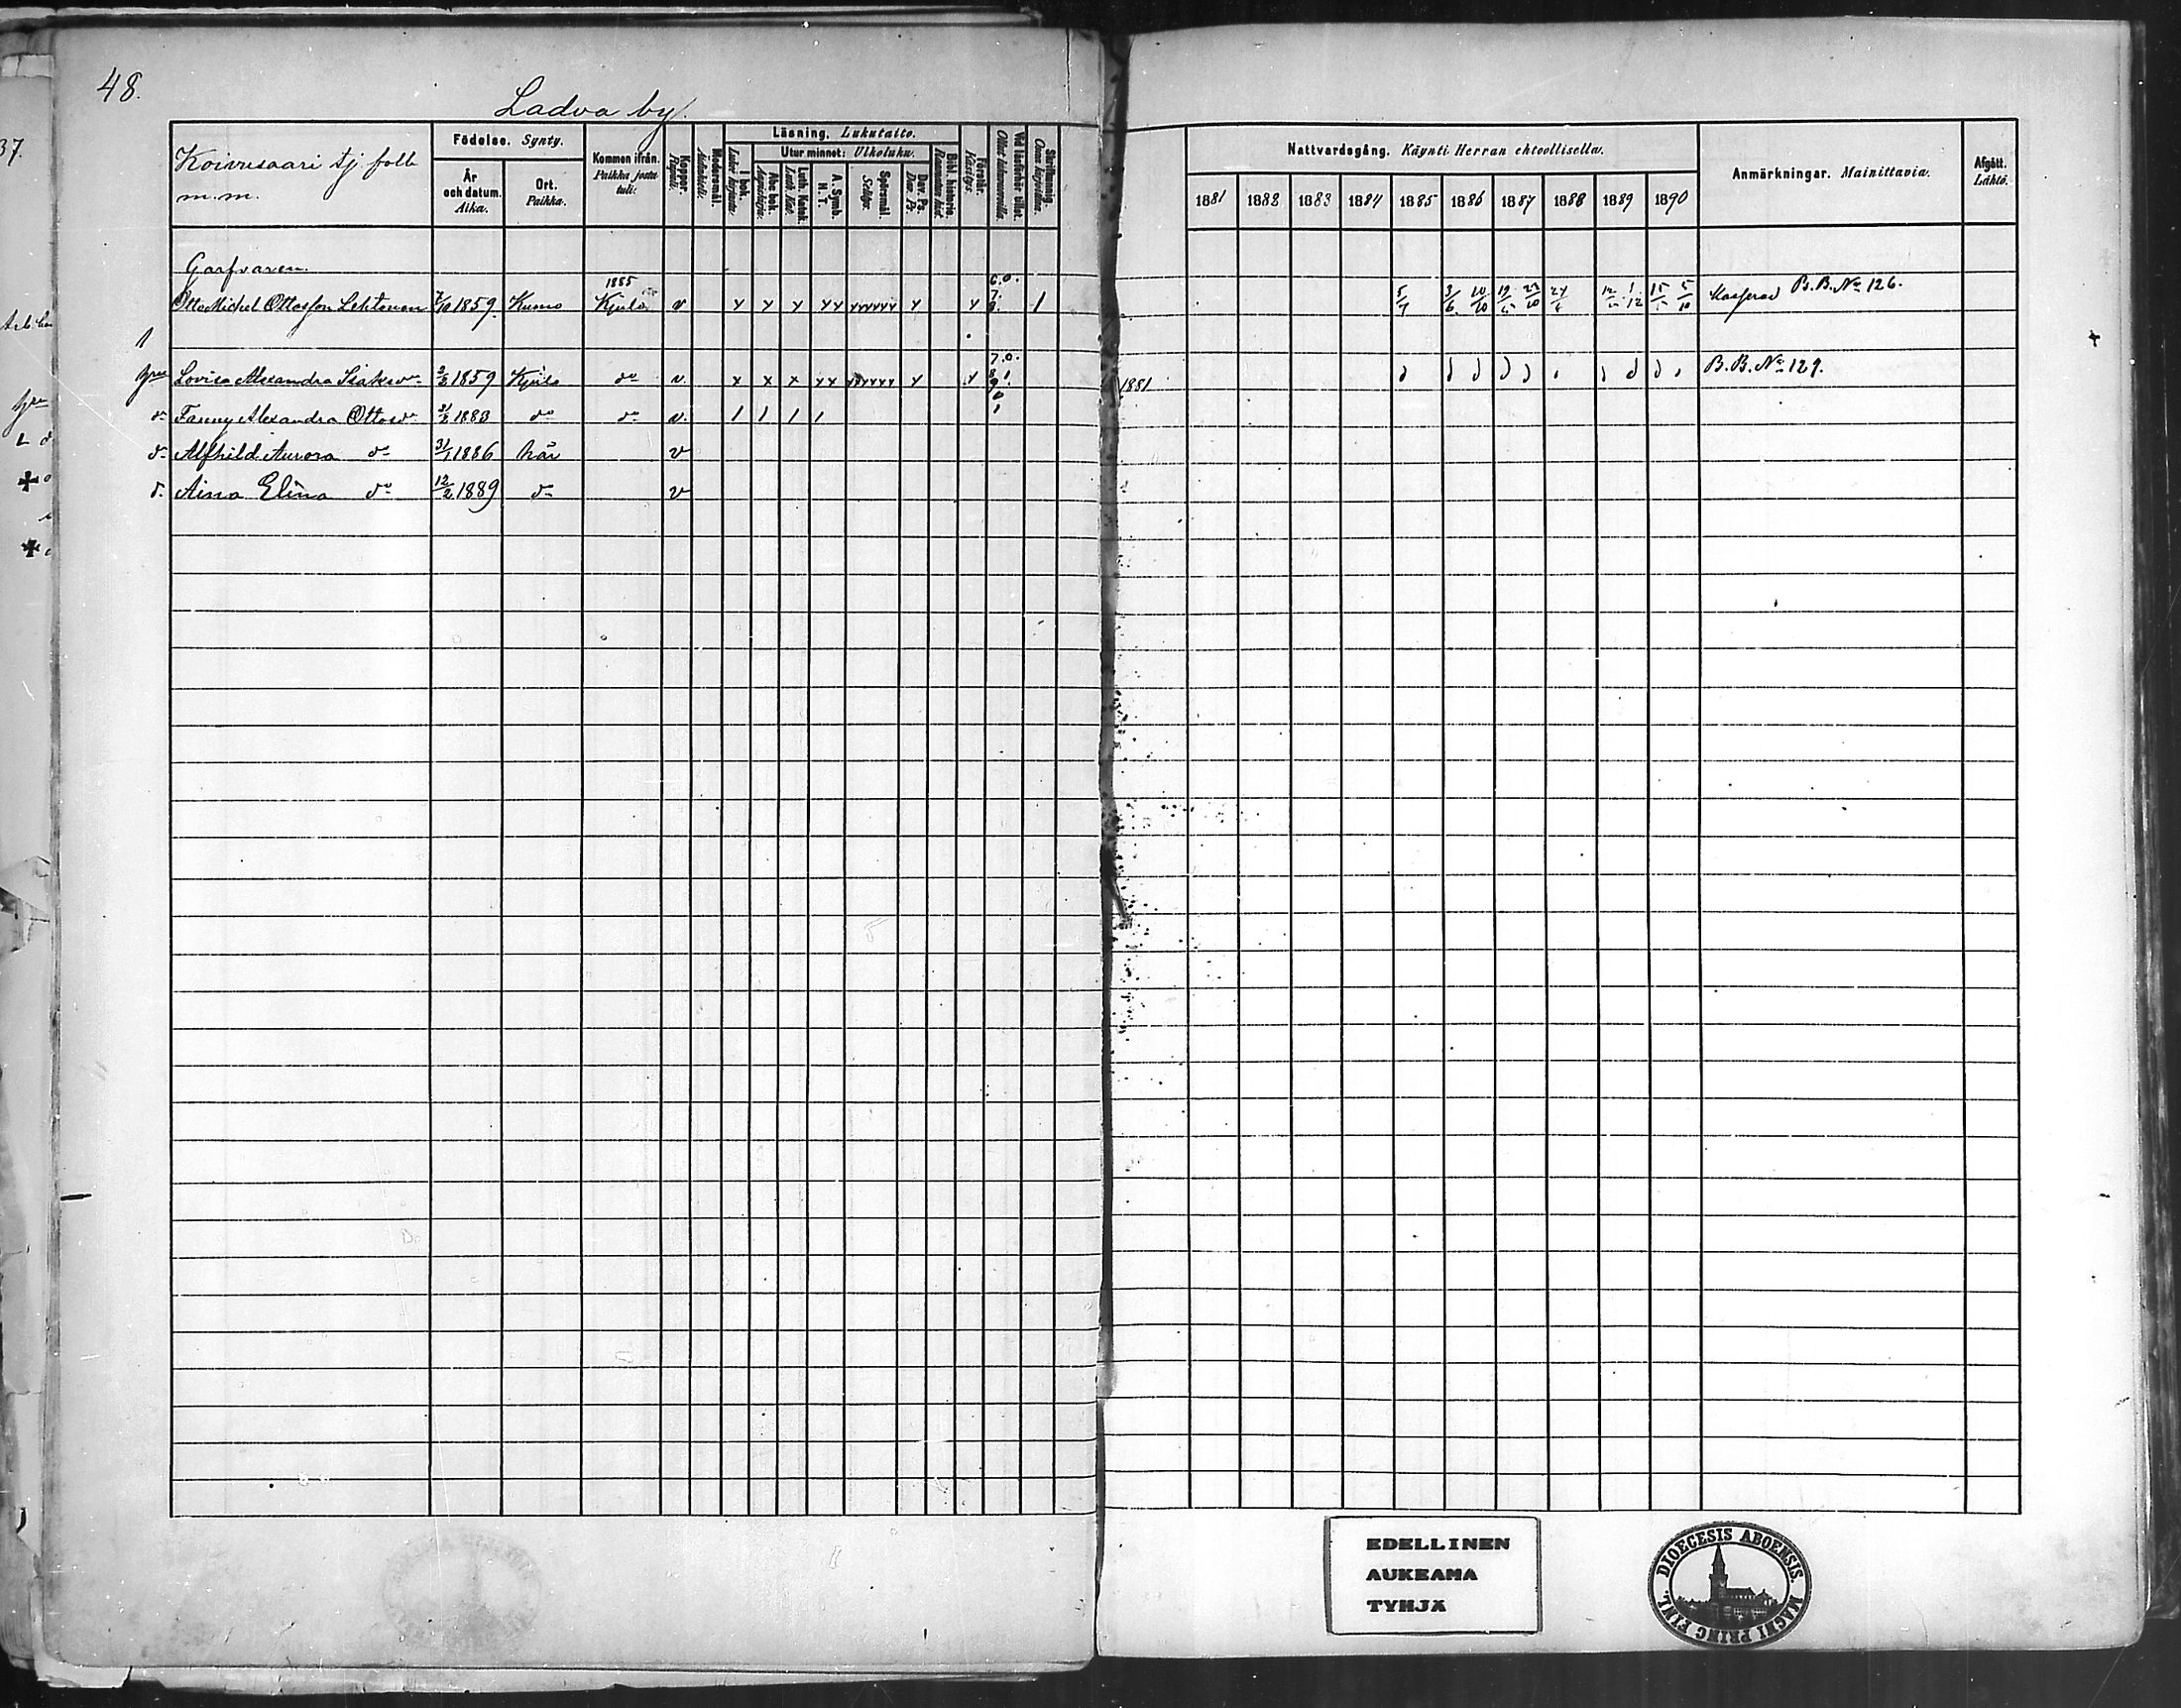 48.
Ladva by.
Koivusaari tj. folk
m. m.
Födelse. Synty.
År och datum. Aika.
Ort. Paikka.
Kommen ifrån. Paikka josta tuli:
Koppor. Rupuli.
Modersmål. Äidinkieli.
Läsning. Lukutaito.
I bok. Luku kirjasta.
Utur minnet: Ulkoluku.
Abc bok. Aapiskirja.
Luth. Katek. Luth. Kat.
A. Symb. H. T.
Spörsmål. Selitys.
Dav. Ps. Dav. Ps.
Bibl. historia. Raamatun hist.
Förstår. Käsitys.
Vid läsförhör tillst. Ollut lukuvuorolla.
Skrifkunnig. Osaa kirjoittaa.
Nattvardsgång. Käynti Herran ehtoollisella.
1881 1882 1883 1884 1885 1886 1887 1888 1889 1890
Anmärkningar. Mainittavia.
Afgått. Lähtö.
Garfvaren.
1885
Otto Michel Ottosson Lehtonen 7/10 1859. Kumo Kjulo v x x x xx xxxxxx x x 6.0. 7. 8. 1 5/7 3/6 20/10 24 1/12 5/10 B.B. No 126.
1
Lovisa Alexandra Isaksdr 1859 Kjulo do v. x x x xx xxxxxx x x 7.0. 8.1. 9. B.B. No 129.
1881
do Fanny Alexandra Ottosdr 1883 do do v. 1 1 1 1 0 1
do Alfhild Aurora do 31/1 1886 här v
d. Aina Elina do 12/2 1889 do v
37.
EDELLINEN
AUKEAMA
TYHJÄ
DIOECESIS ABOENSIS. MAGNI PRINC. FINL.